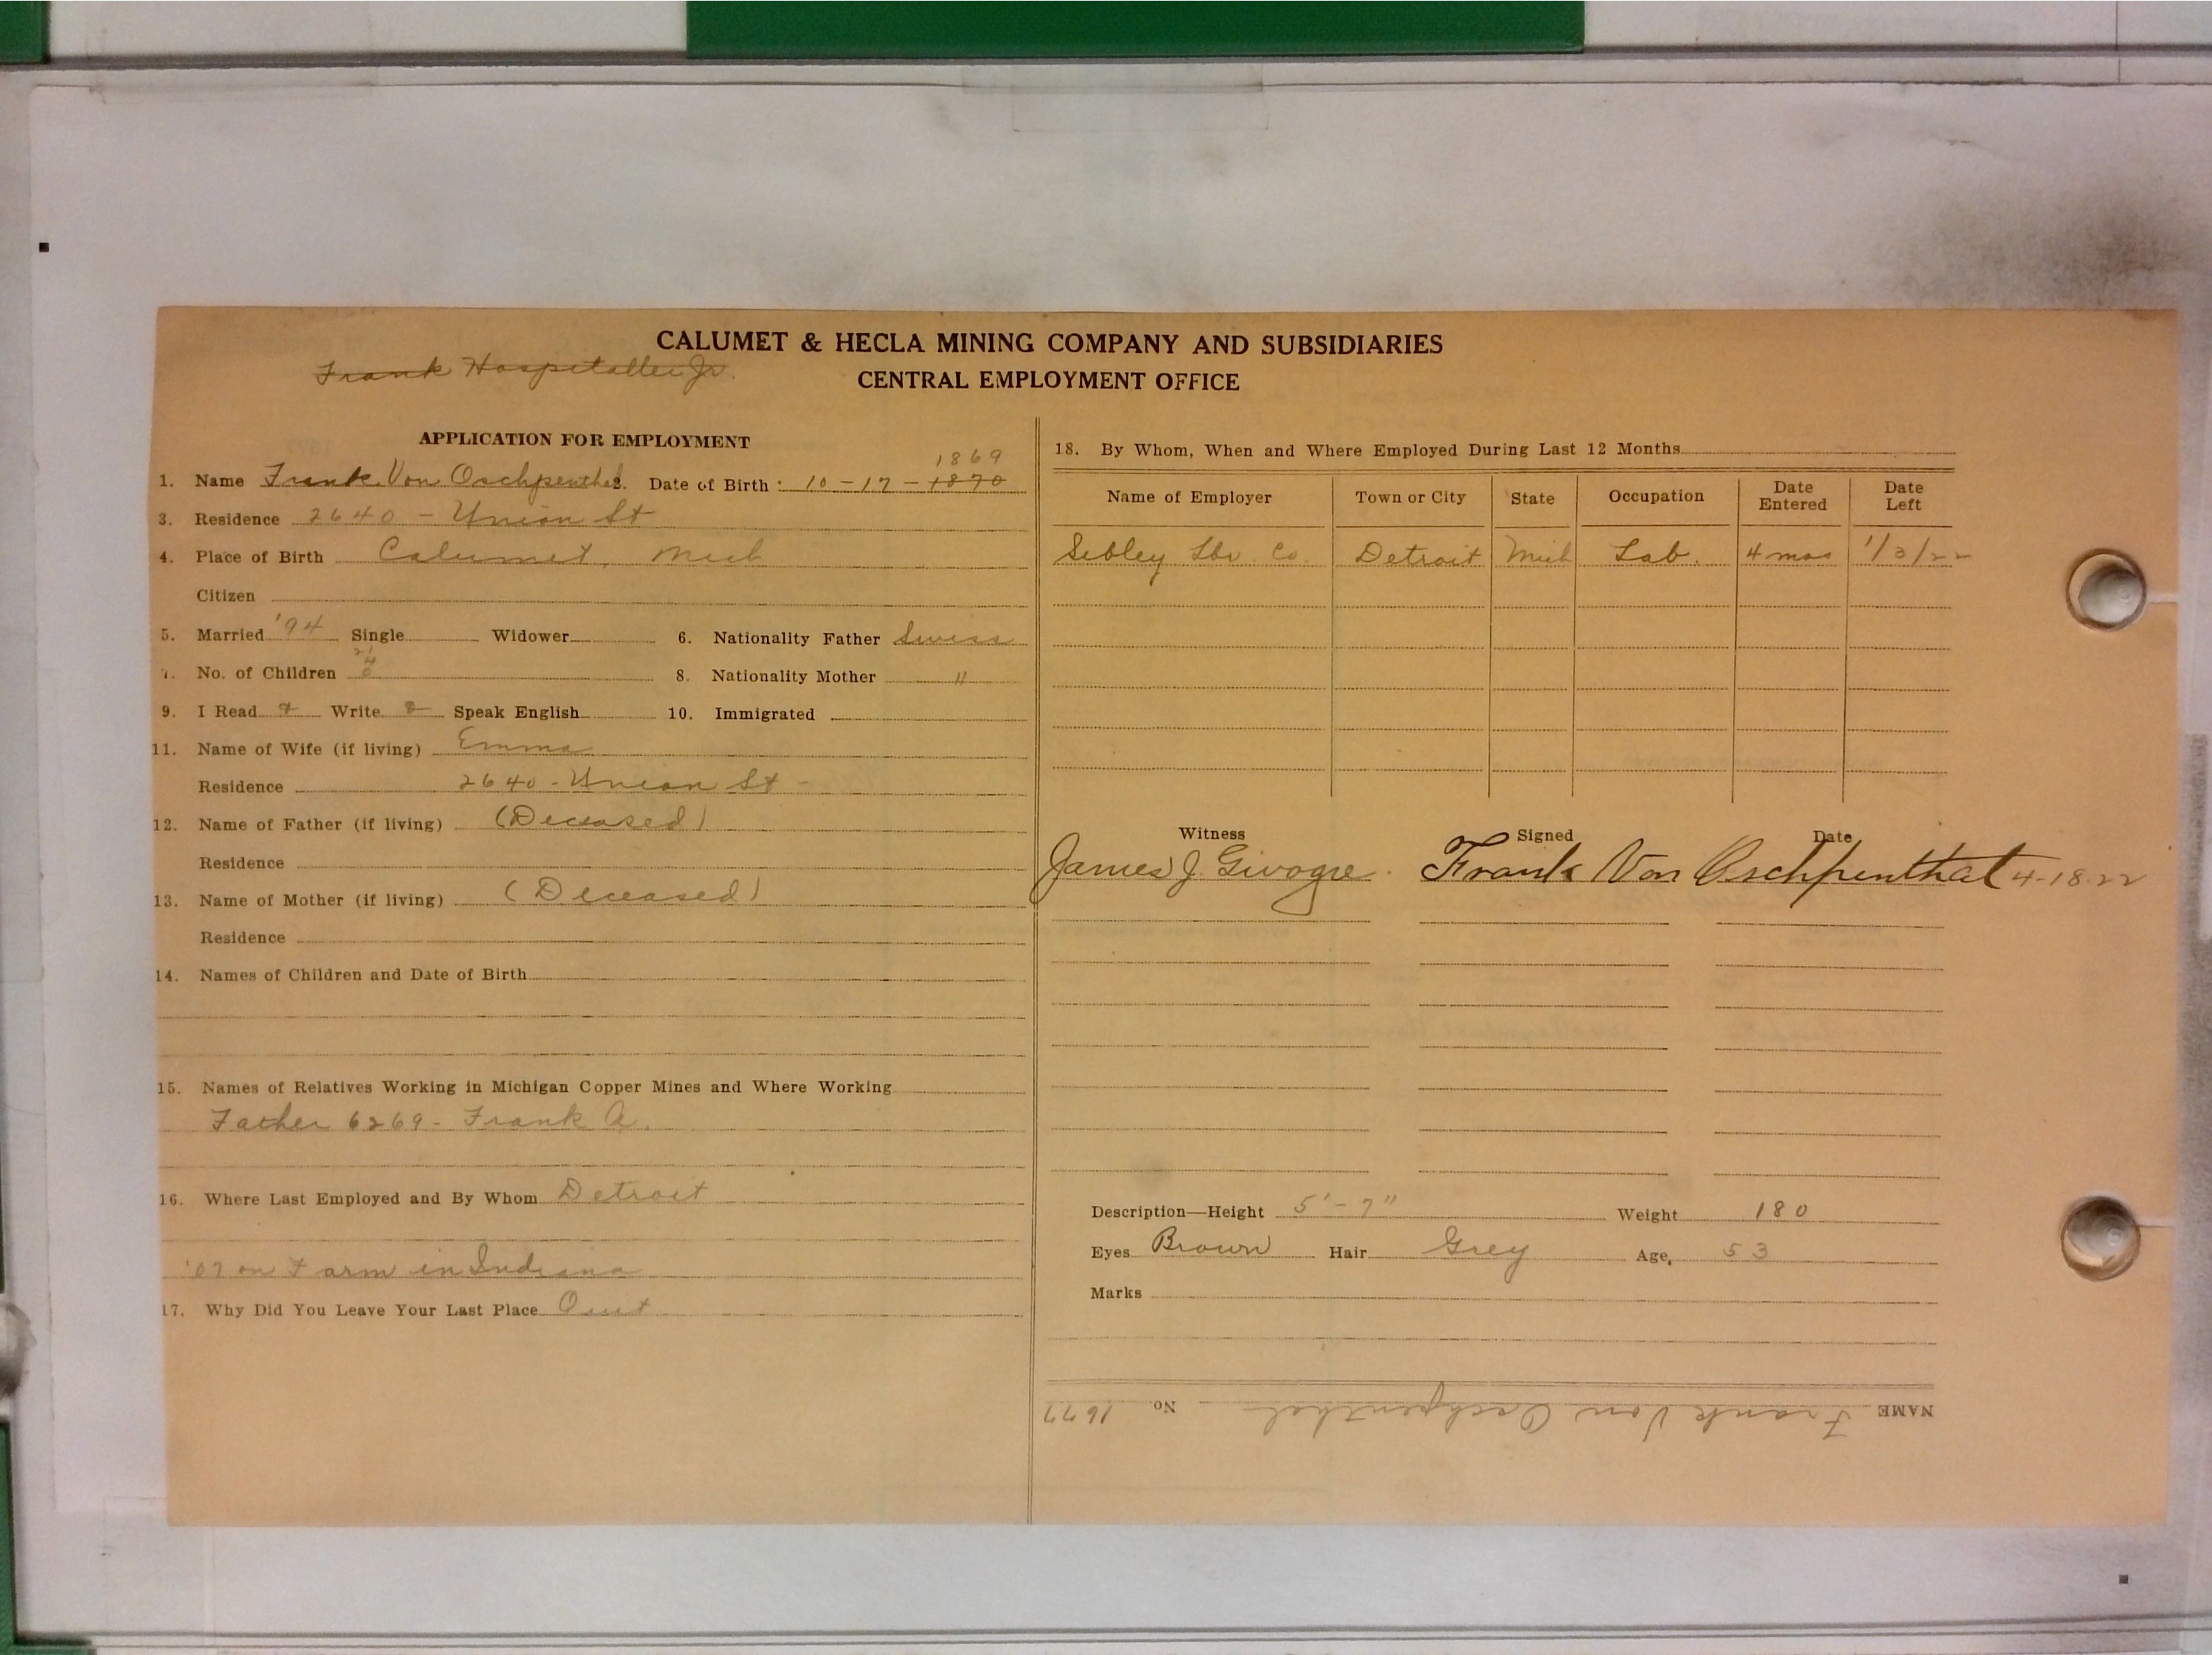 CALUMET & HECLA MINING COMPANY AND SUBSIDIARIES
Frank Hospitaller Jr.
CENTRAL EMPLOYMENT OFFICE
APPLICATION FOR EMPLOYMENT
1869
1. Name Frank Von Oschpenthal 2. Date of Birth: 10-17-1870
3. Residence 2640 - Union St
4. Place of Birth Calumet, Mich
Citizen
5. Married '94 Single Widower 6. Nationality Father Swiss
7. No. of Children 8. Nationality Mother "
9. I Read Write Speak English 10. Immigrated
11. Name of Wife (if living) Emma
Residence 2640 - Union St -
12. Name of Father (if living) (Deceased)
Residence
13. Name of Mother (if living) (Deceased)
Residence
14. Names of Children and Date of Birth
15. Names of Relatives Working in Michigan Copper Mines and Where Working
Father 6269 - Frank A.
16. Where Last Employed and By Whom Detroit
'07 on Farm in Indiana
17. Why Did You Leave Your Last Place Quit
18. By Whom, When and Where Employed During Last 12 Months
Name of Employer Town or City State Occupation Date Entered Date Left
Sibley Lbr Co. Detroit Mich Lab. 4 mos 1/3/22
Witness Signed Date
James J. Givogre. Frank Von Oschpenthal 4-18-22
Description—Height 5'-7" Weight 180
Eyes Brown Hair Grey Age, 53
Marks
NAME Frank Von Oschpenthal No. 1677